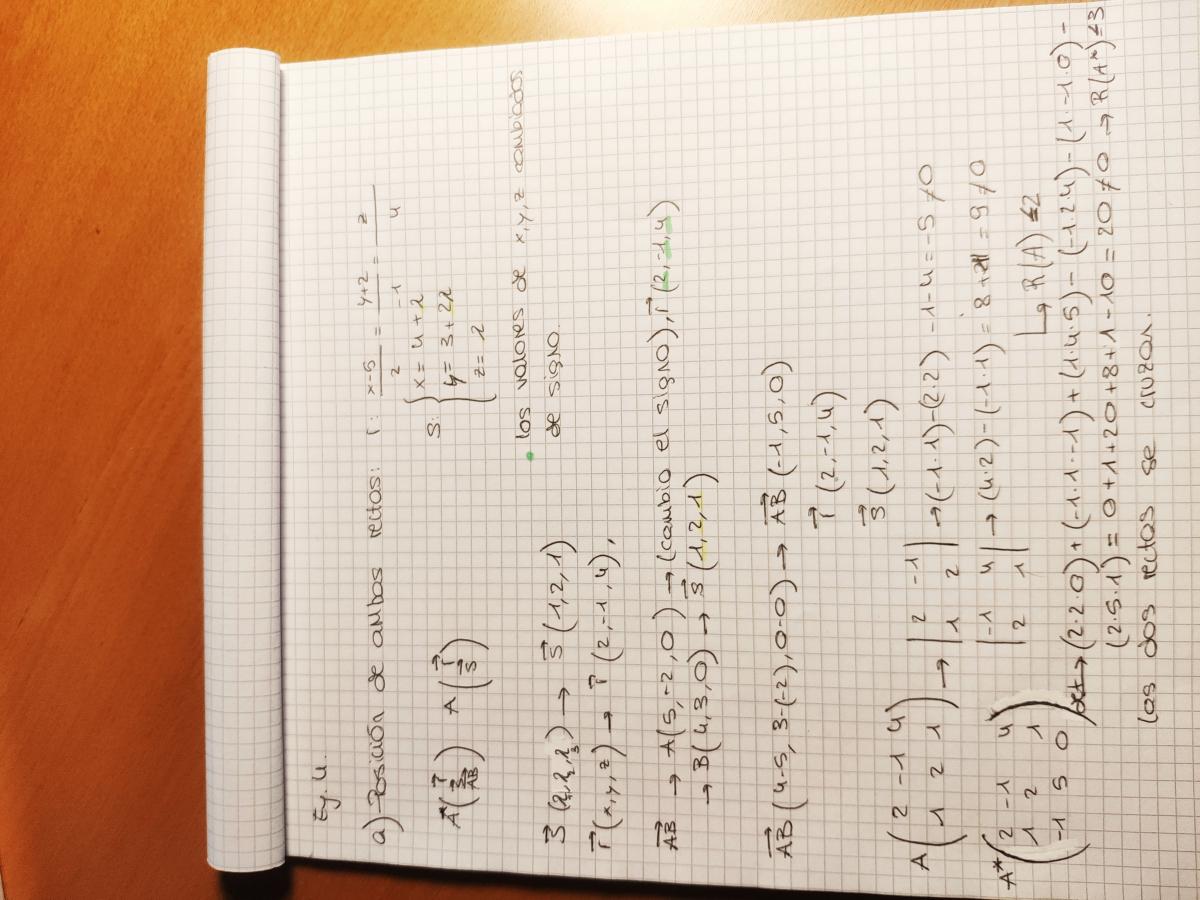 Ej. 4.
a) Posición de ambas rectas: r: x-5/2 = y+2/-1 = z/4
s: { x = 4+λ
y = 3+2λ
z = λ
A*(r⃗ s⃗ AB⃗) A(r⃗ s⃗)
• Los valores de x,y,z cambiados
de signo.
s⃗ (λ₁,λ₂,λ₃) → s⃗ (1,2,1)
r⃗ (x,y,z) → r⃗ (2,-1,4),
AB⃗ → A(5,-2,0) → (cambio el signo), r⃗ (2,-1,4)
→ B(4,3,0) → s⃗ (1,2,1)
AB⃗ (4-5, 3-(-2), 0-0) → AB⃗ (-1,5,0)
r⃗ (2,-1,4)
s⃗ (1,2,1)
A (2 -1 4
1 2 1) → |2 -1
1 2| → (-1·1)-(2·2) -1-4 = -5 ≠ 0
|-1 4
2 1| → (4·2)-(-1·1) = 8+1 = 9 ≠ 0
↳ R(A) = 2
A* (2 -1 4
1 2 1
-1 5 0) det → (2·2·0)+(-1·1·-1)+(1·4·5)-(-1·2·4)-(1·-1·0)-
(2·5·1) = 0+1+20+8+1-10 = 20 ≠ 0 → R(A*) = 3
Las dos rectas se cruzan.